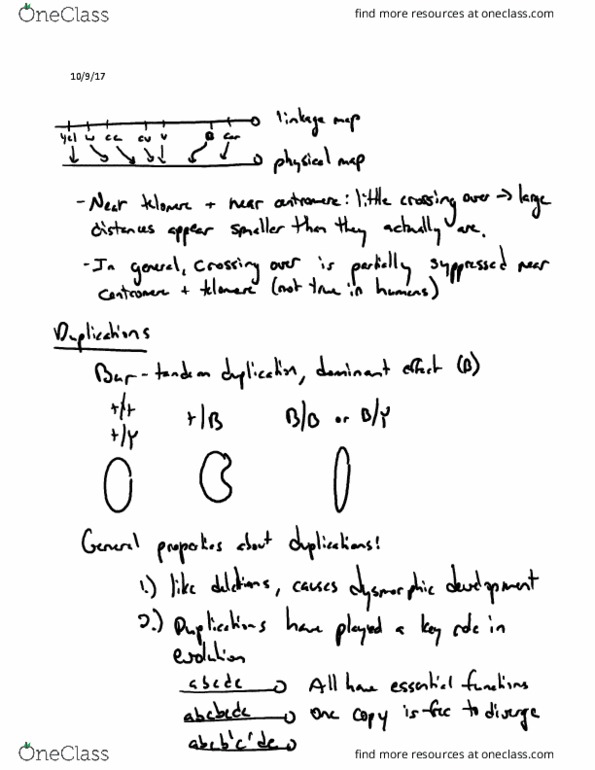 OneClass
find more resources at oneclass.com
10/9/17
linkage map
ycl w cv v B car
physical map
- Near telomere + near centromere: little crossing over → large
distances appear smaller than they actually are.
- In general, crossing over is partially suppressed near
centromere + telomere (not true in humans)
Duplications
Bar - tandem duplication, dominant effect (B)
+/+
+/Y
+/B
B/B or B/Y
General properties about duplications!
1.) like deletions, causes dysmorphic development
2.) Duplications have played a key role in
evolution
abcde All have essential functions
abcbcde one copy is free to diverge
abcb'c'de
OneClass
find more resources at oneclass.com